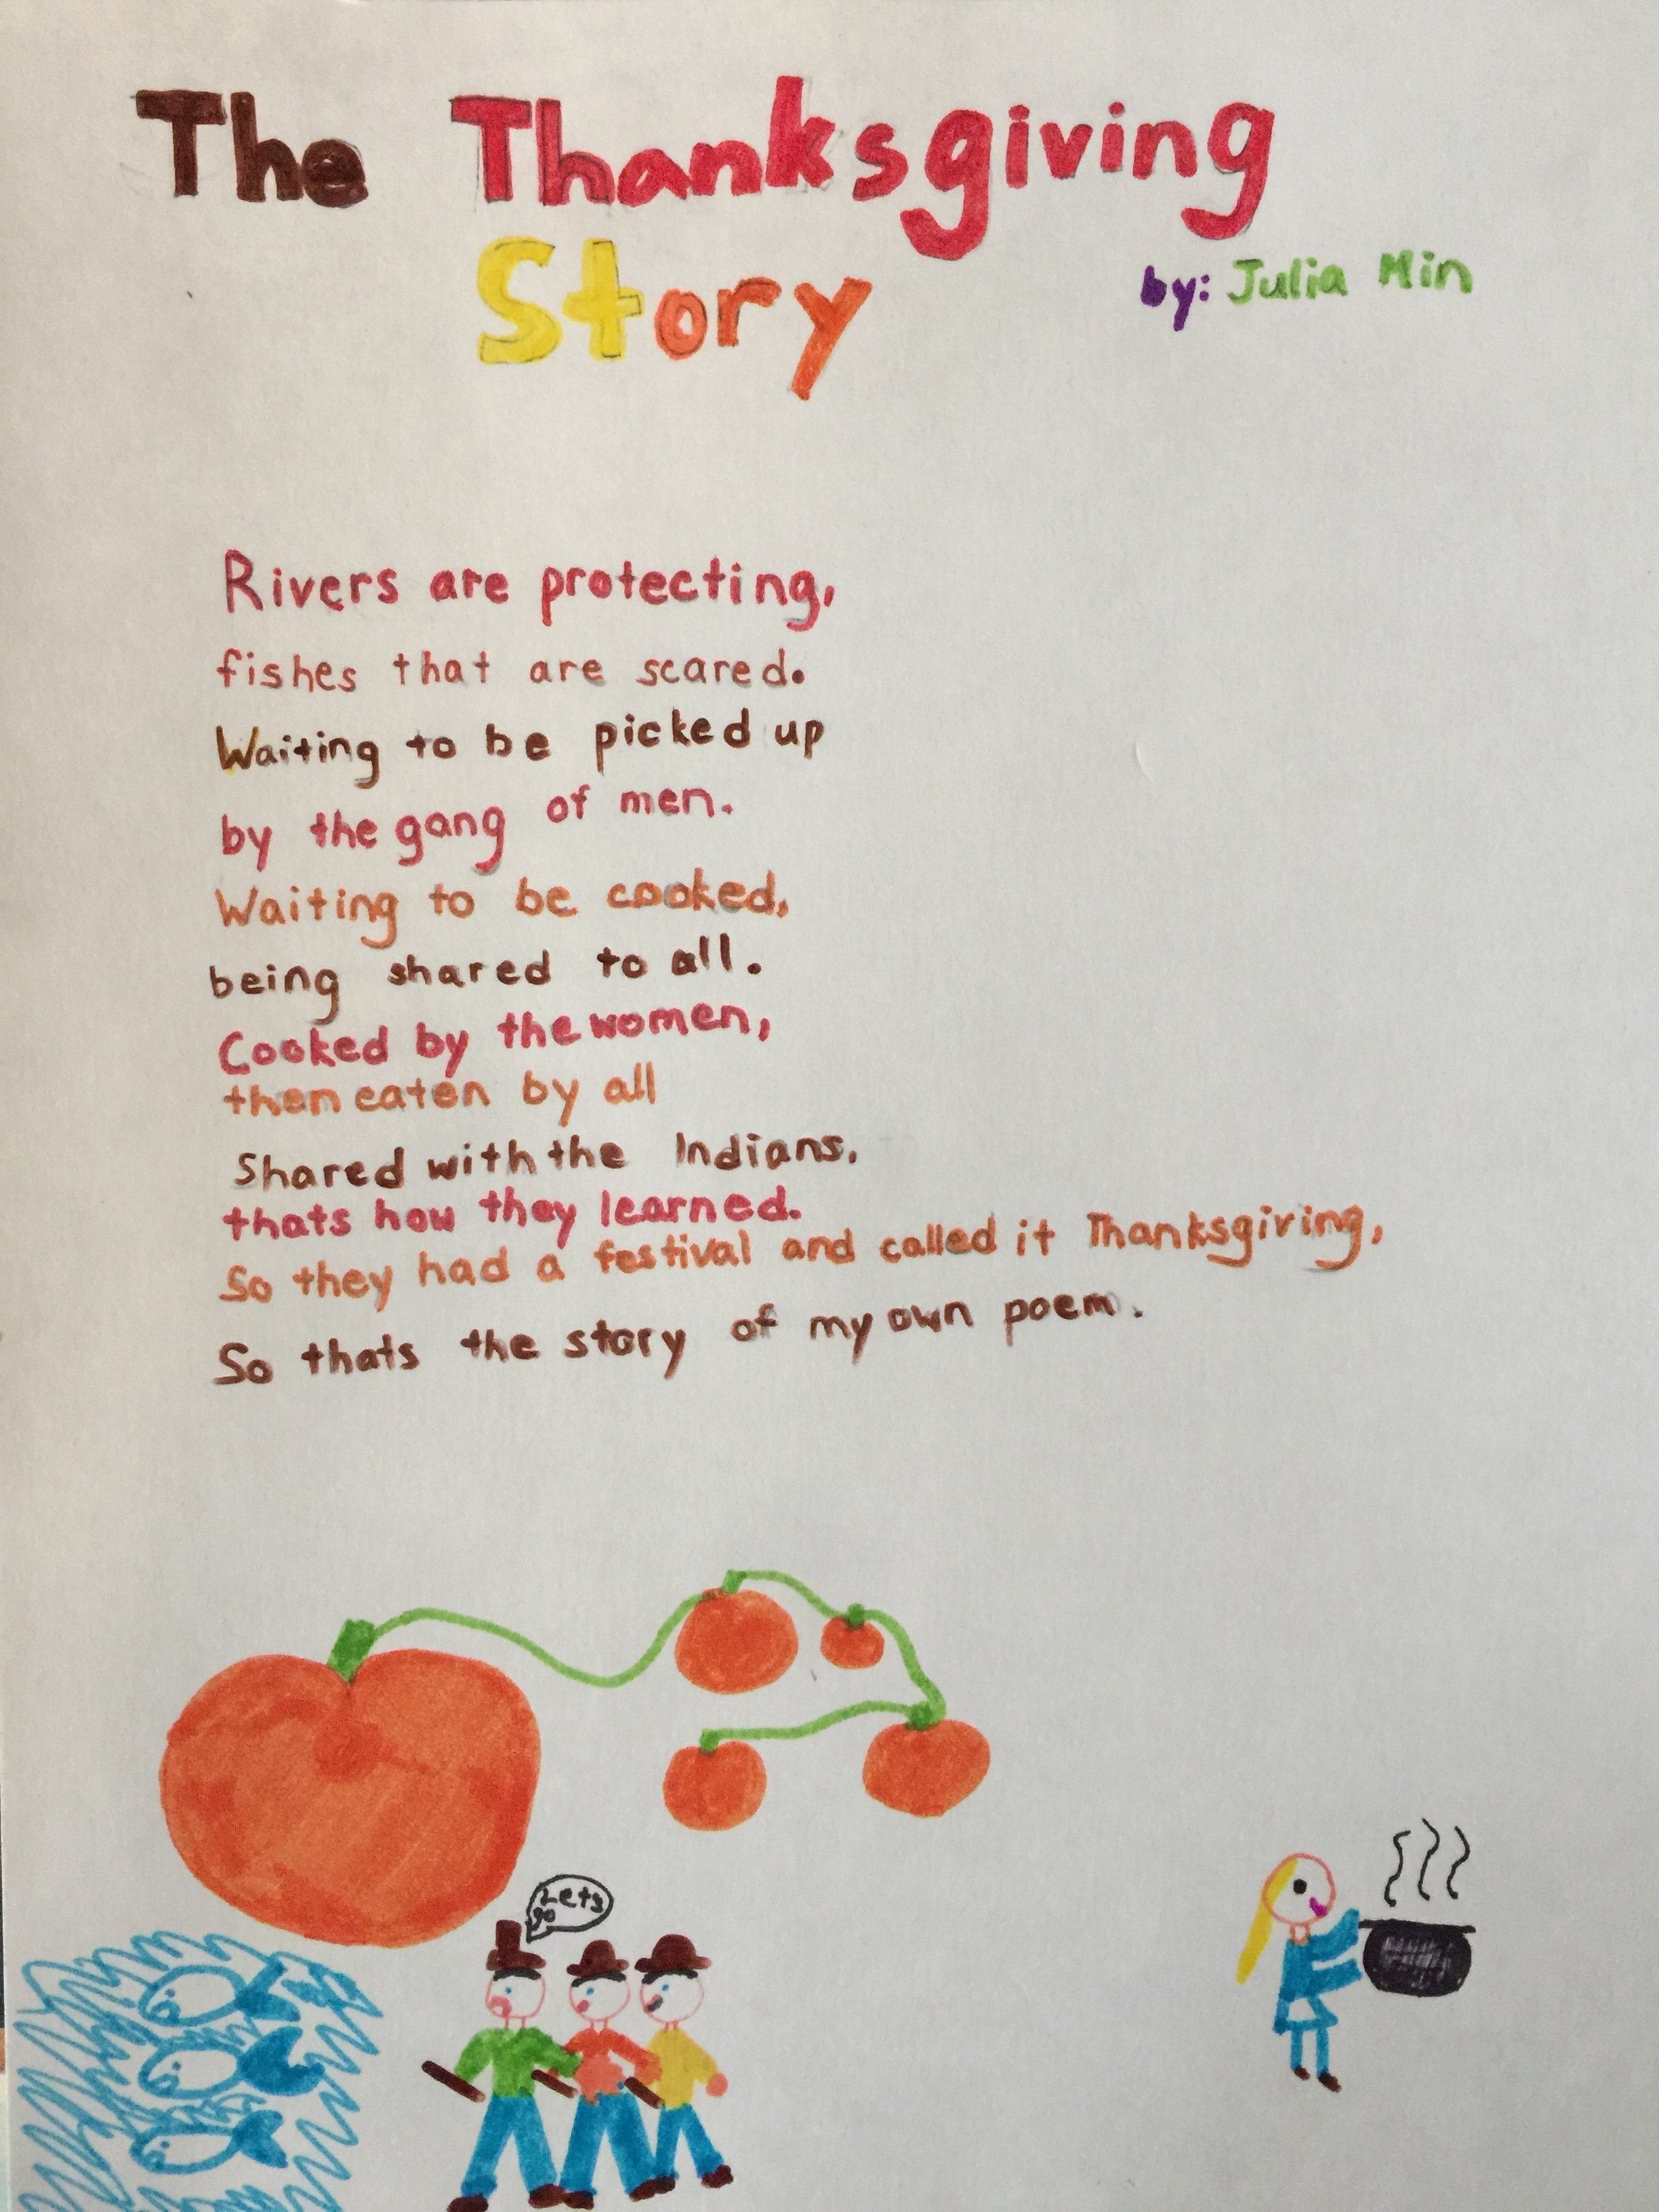 The Thanksgiving
Story
by: Julia Min
Rivers are protecting,
fishes that are scared.
Waiting to be picked up
by the gang of men.
Waiting to be cooked,
being shared to all.
Cooked by the women,
then eaten by all
Shared with the Indians,
thats how they learned.
So they had a festival and called it Thanksgiving,
So thats the story of my own poem.
Lets
go